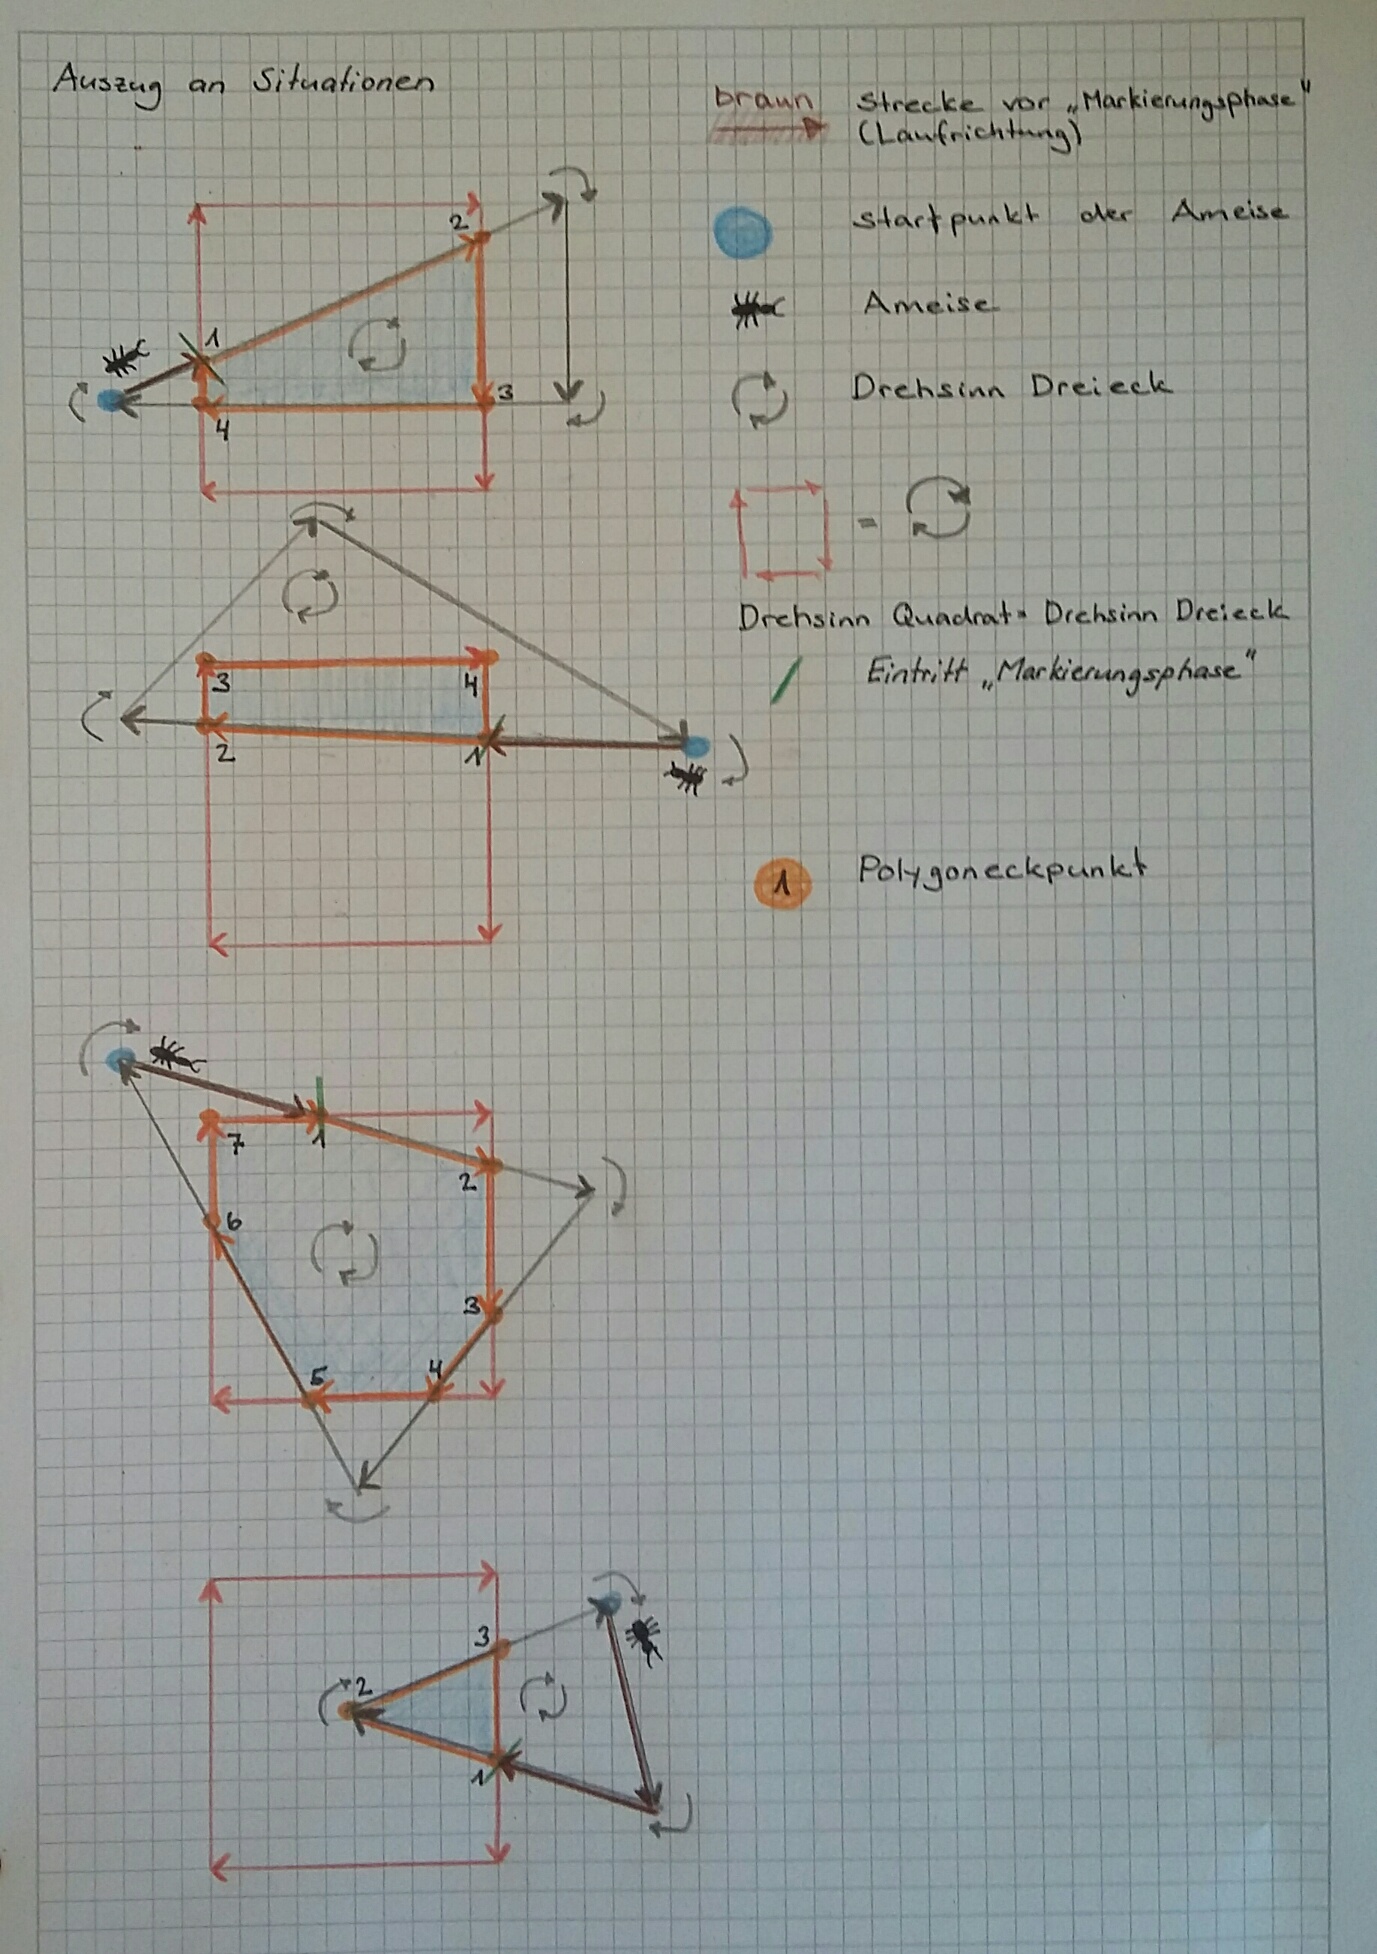 Auszug an Situationen
braun Strecke vor „Markierungsphase"
(Laufrichtung)
Startpunkt der Ameise
Ameise
Drehsinn Dreieck
=
Drehsinn Quadrat = Drehsinn Dreieck
Eintritt „Markierungsphase"
1 Polygoneckpunkt
2
1
3
4
3 4
2 1
7 1
2
6
3
5 4
3
2
1